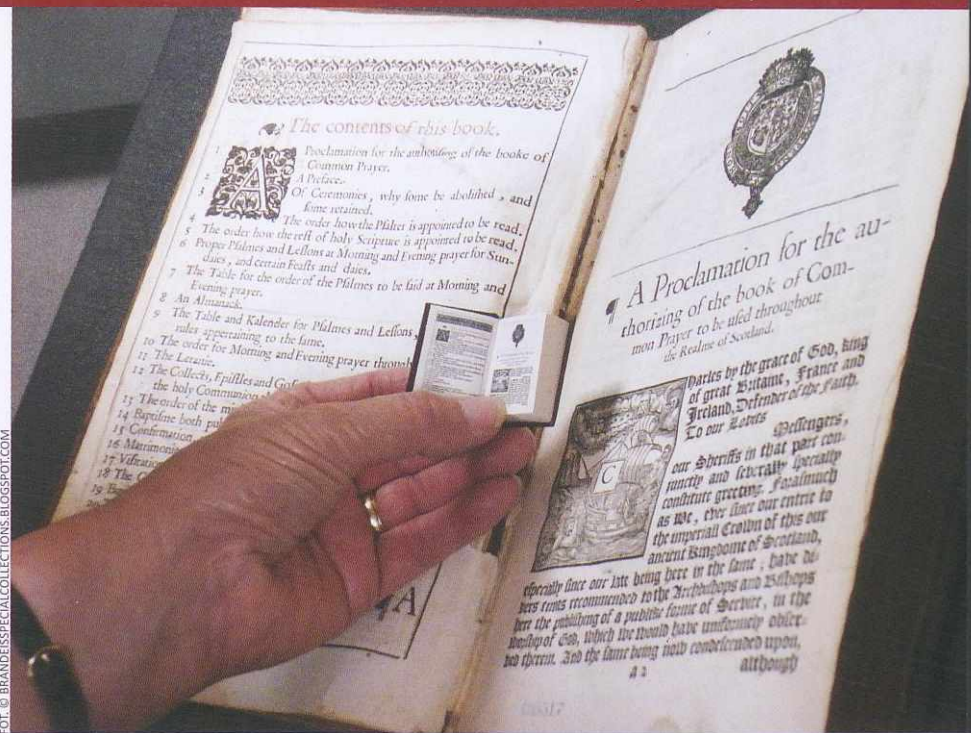 The contents of this book.
1 A Proclamation for the authorising of the booke of
Common Prayer.
2 A Preface.
3 Of Ceremonies, why ſome be aboliſhed, and
ſome retained.
4 The order how the Pſalter is appointed to be read.
5 The order how the reſt of holy Scripture is appointed to be read.
6 Proper Pſalmes and Leſſons at Morning and Evening prayer for Sun-
daies, and certain Feaſts and daies.
7 The Table for the order of the Pſalmes to be ſaid at Morning and
Evening prayer.
8 An Almanack.
9 The Table and Kalender for Pſalmes and Leſſons,
rules appertaining to the ſame.
10 The order for Morning and Evening prayer
11 The Letanie.
12 The Collects, Epiſtles and
the holy Communion
13 The order of the
14 Baptiſme both
15 Confirmation
16 Matrimonie
17
18 The
19
A
A Proclamation for the au-
thorizing of the book of Com-
mon Prayer to be uſed throughout
the Realme of Scotland.
C harles by the grace of God, king
of great Britaine, France and
Ireland, Defender of the Faith.
To our Lovits
Meſſengers,
our Sheriffs in that part con-
junctly and ſeverally ſpecially
conſtitute greeting. Foraſmuch
as we, ever ſince our entrie to
the imperiall Crown of this our
ancient kingdome of Scotland,
eſpecially ſince our late being here in the ſame, have di-
vers times recommended to the Archbiſhops and Biſhops
here the publiſhing of a publike forme of Service, in the
worſhip of God, which we would have uniformely obſer-
ved therein. And the ſame being now condeſcended upon,
a 2 although
FOT. © BRANDEISSPECIALCOLLECTIONS.BLOGSPOT.COM